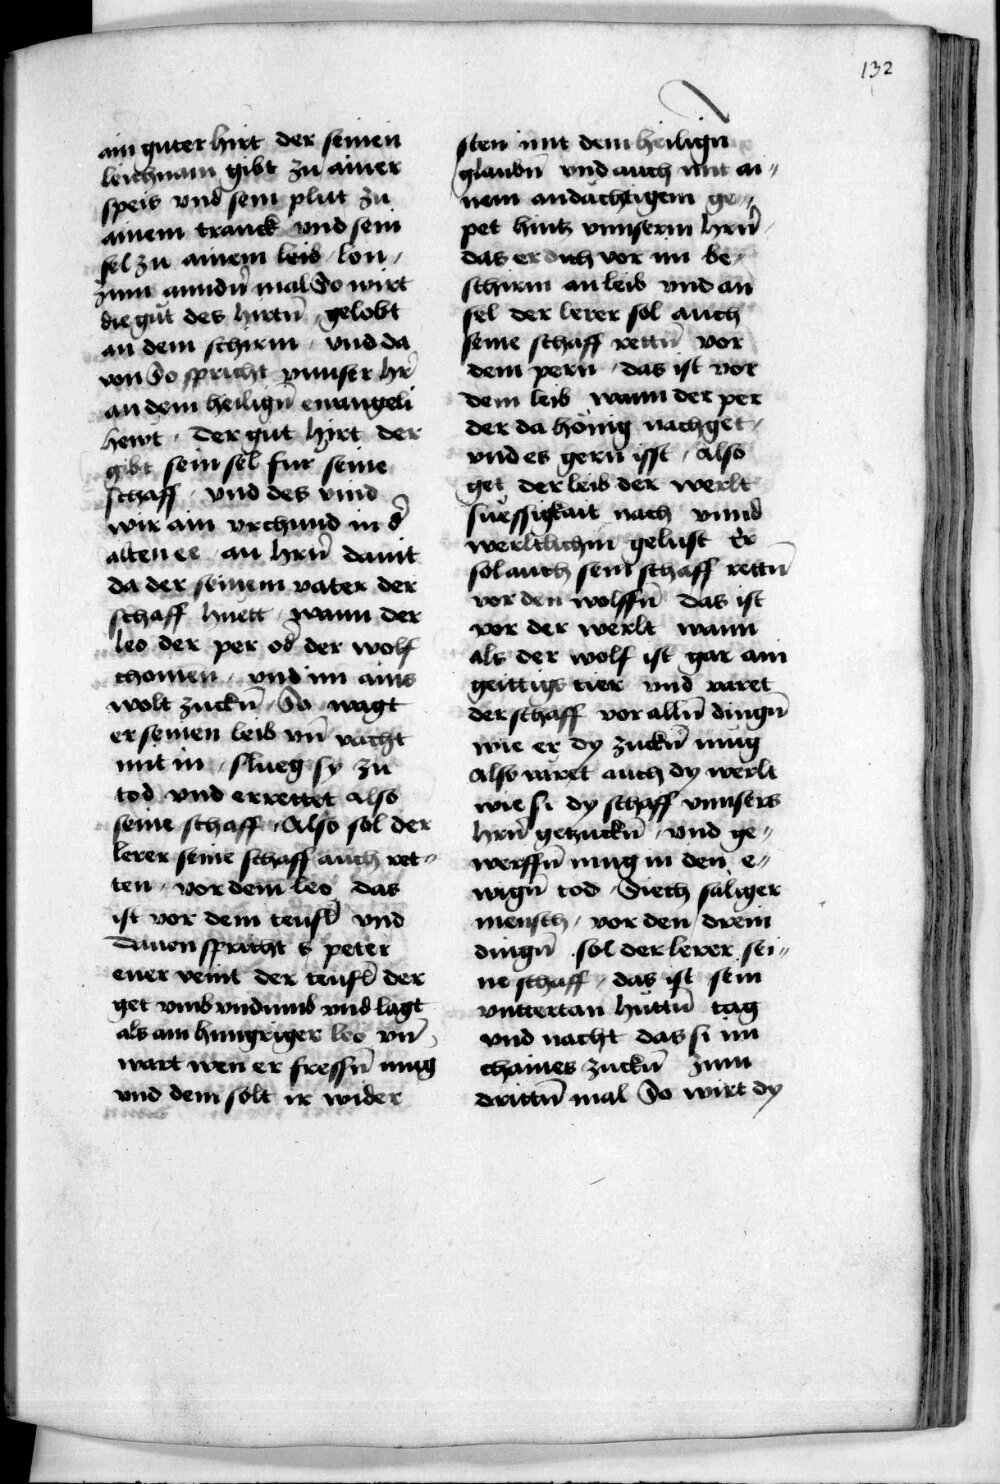 132
ain guter hirt der seinen
leichnam gibt zu ainer
speis vnd sein plut zu
ainem tranck vnd sein
sel zu ainem leib lon /
zum anndn̄ mal So wirt
die güt des hirtn̄ gelobt
an dem schirm / vnd da
von So spricht vnnser hr̄
an dem heilign̄ ewangeli
hewt / Der gut hirt der
gibt sein sel fur seine
schaff / vnd des vind
wir ain vrchund in d̄
alten ee / an hrn̄ dauit
da der seinem vater der
schaff huett / wann der
leo der per od̄ der wolf
chomen / vnd im ains
wolt zuckn̄ / So wagt
er seinen leib vn̄ vacht
mit in / slueg sy zu
tod vnd errettet also
seine schaff / Also sol der
lerer seine schaff auch ret=
ten / vor dem leo das
ist vor dem teufl̄ vnd
dauon spricht s peter
ewer veint der teufl̄ der
get vmb vndumb vnd lagt
als ain hungriger leo vn̄
wart wen er fressn̄ mug
vnd dem solt ir wider
sten mit dem heilign̄
glaubn̄ vnd auch mit ai=
nem andächtigem ge=
pet hintz vnnserm hrn̄ /
das er dich vor im be=
schirm an leib vnd an
sel der lerer sol auch
seine schaff rettn̄ vor
dem pern / das ist vor
dem leib wann der per
der da hönig nachget /
vnd es gern isst / Also
get der leib der werlt
süessigkait nach vnnd
werltlichm gelust Er
sol auch sein schaff rettn̄
vor den wolffn̄ das ist
vor der werlt wann
als der wolf ist gar ain
geittigs tier vnd varet
der schaff vor alln̄ dingn̄
wie er dy zuckn̄ mug
also varet auch dy werlt
wie si dy schaff vnnsers
hrn̄ getzuckn̄ / vnd ge=
werffn̄ mug in den e=
wign̄ tod / Siech säliger
mensch / vor den drein
dingn̄ sol der lerer sei=
ne schaff / das ist sein
vnttertan hüttn̄ tag
vnd nacht das si im
chaines zuckn̄ Zum
drittn̄ mal So wirt dy